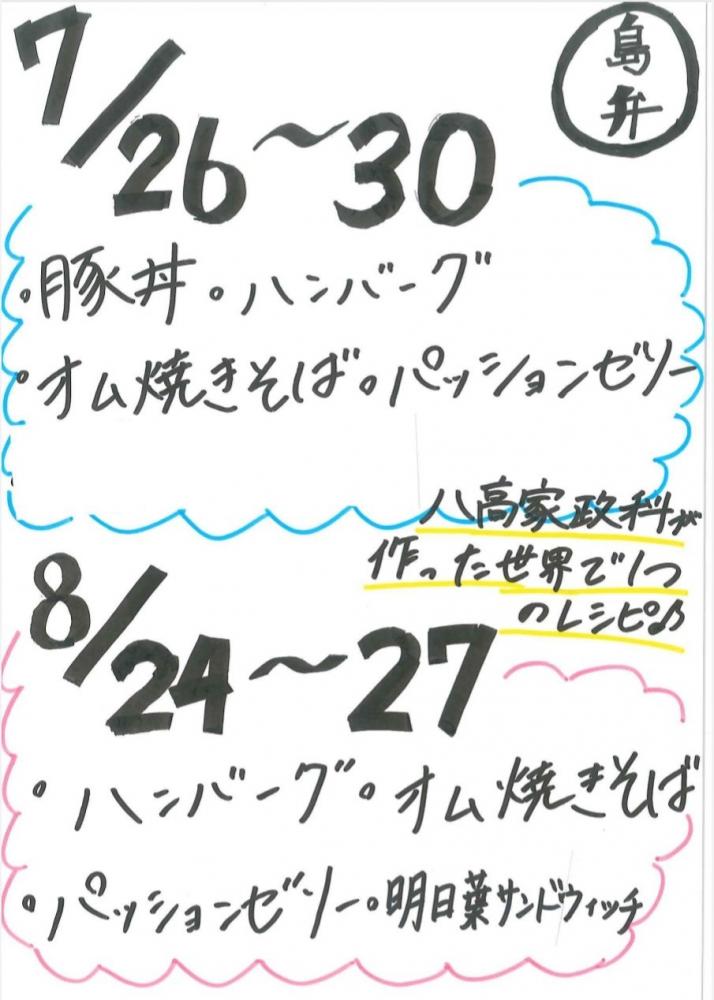 島
弁
7/26〜30
。豚丼。ハンバーグ
。オム焼きそば。パッションゼリー
八高家政科が
作った世界で1つ
のレシピ♪
8/24〜27
。ハンバーグ。オム焼きそば
。パッションゼリー。明日葉サンドウィッチ